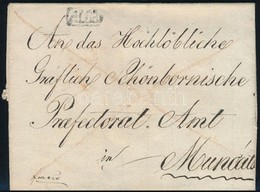 An das Hochlöbliche
Gräflich Schönbornische
Præfectorat. Amt
in Munkáts